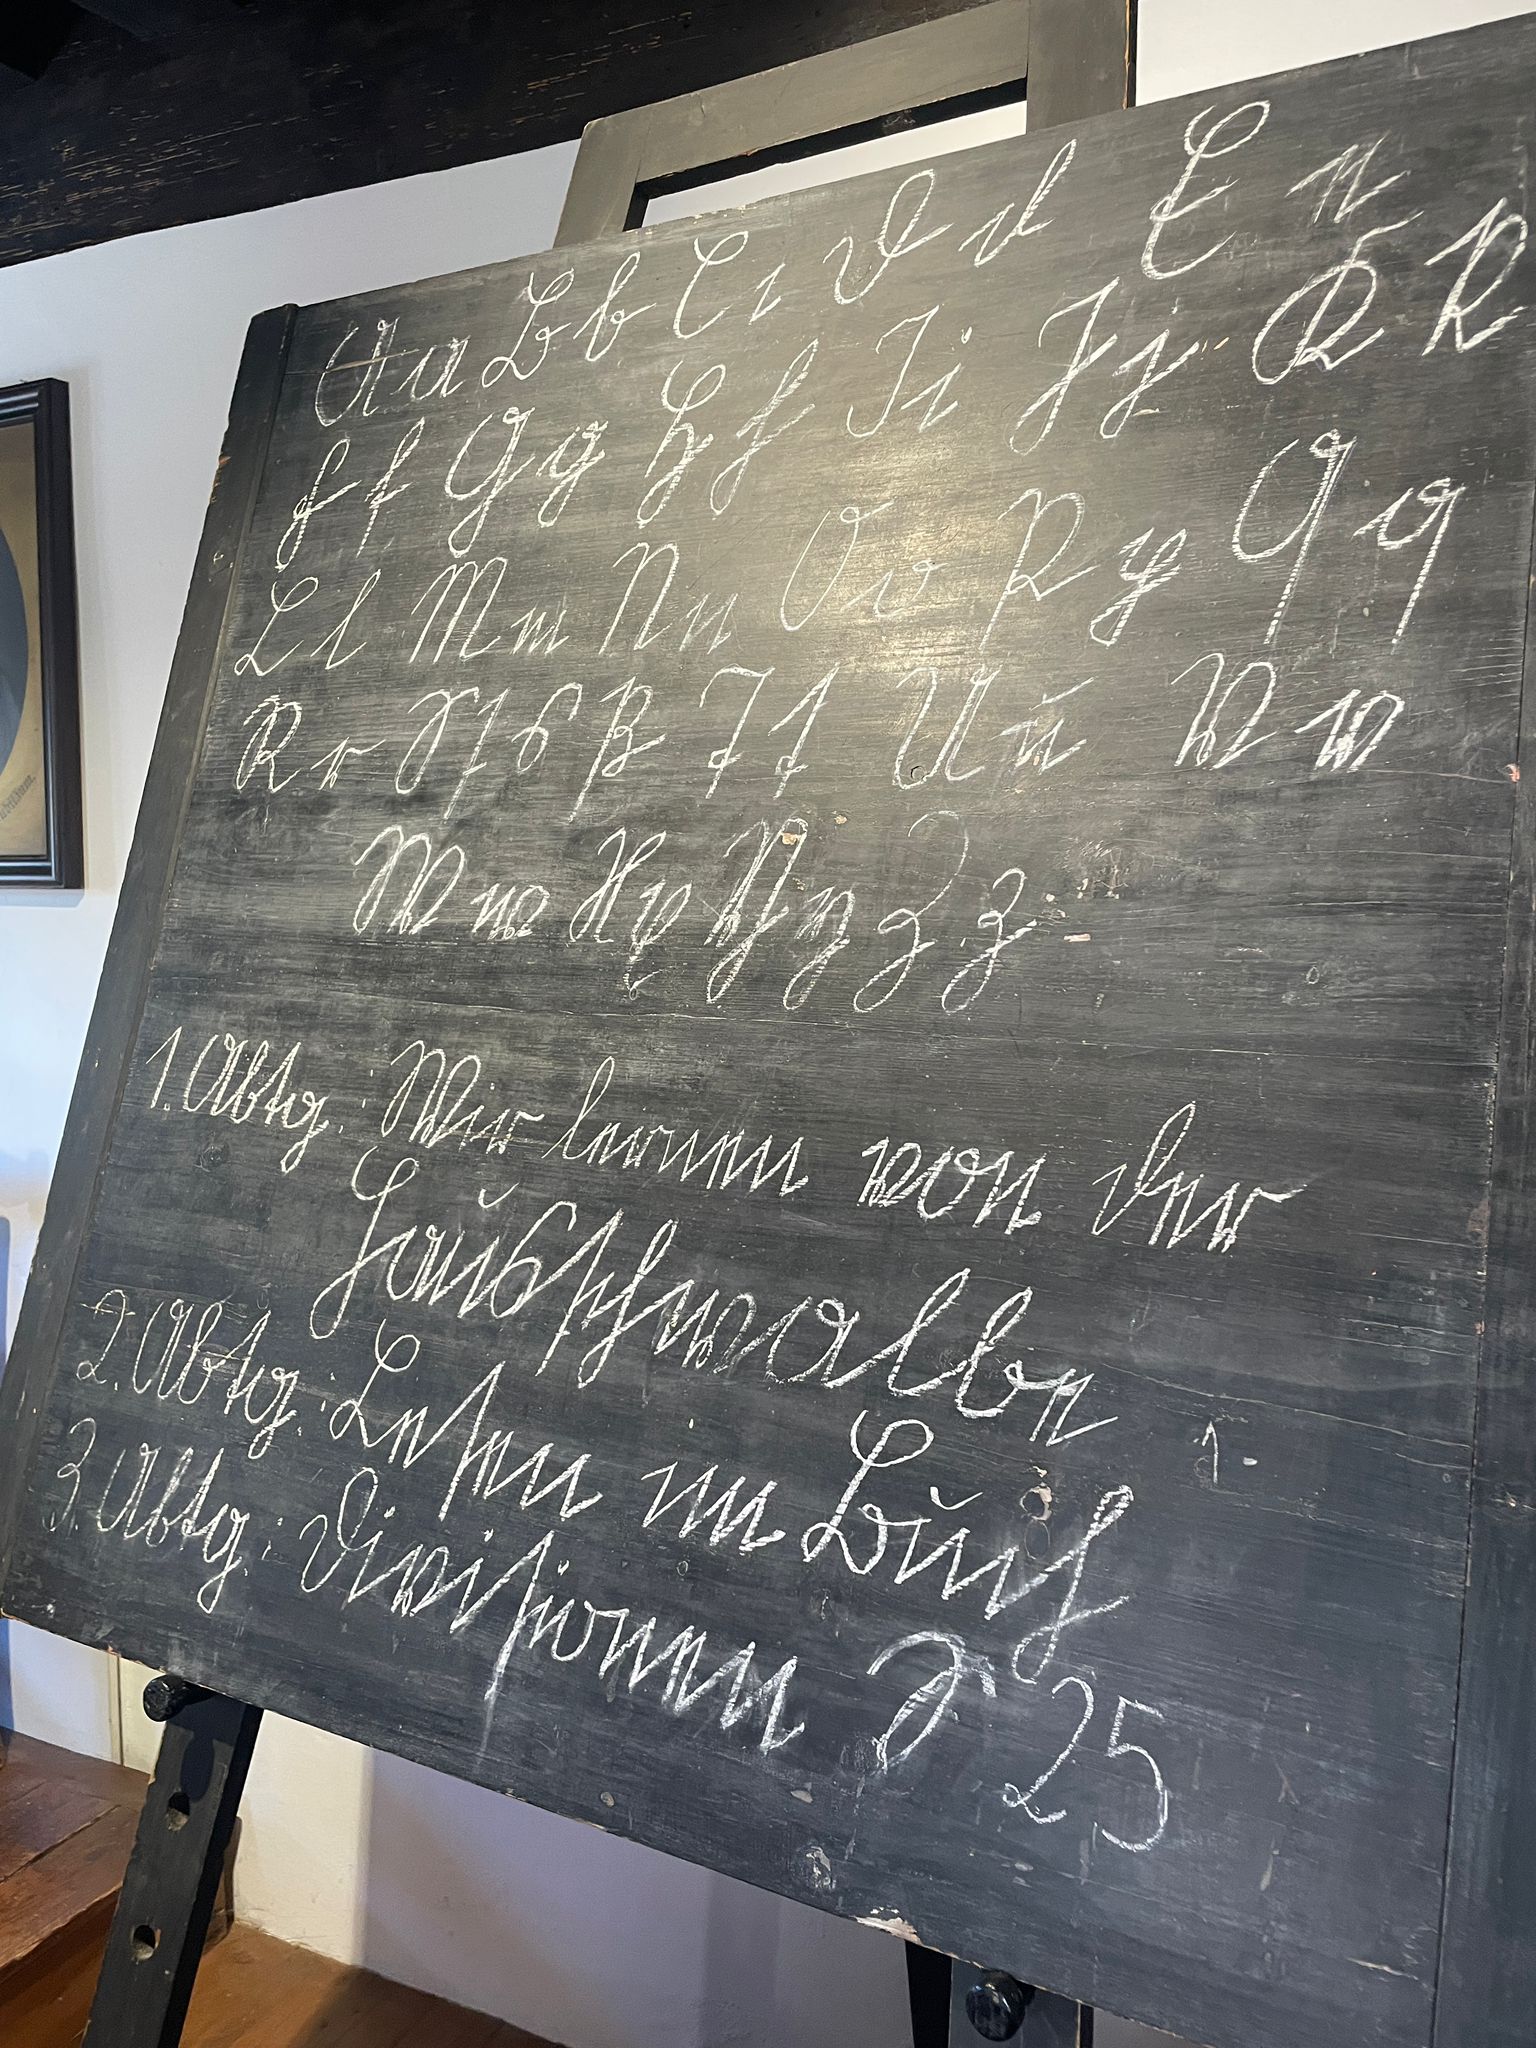 A a B b C c D d E e
F f G g H h I i J j K k
L l M m N n O o P p Q q
R r S ſ s ß T t U u V v
W w X x Y y Z z
1. Abtg.: Wir lernen von der
Hausſchwalbe
2. Abtg.: Leſen im Buch
3. Abtg.: Diviſionen S. 25